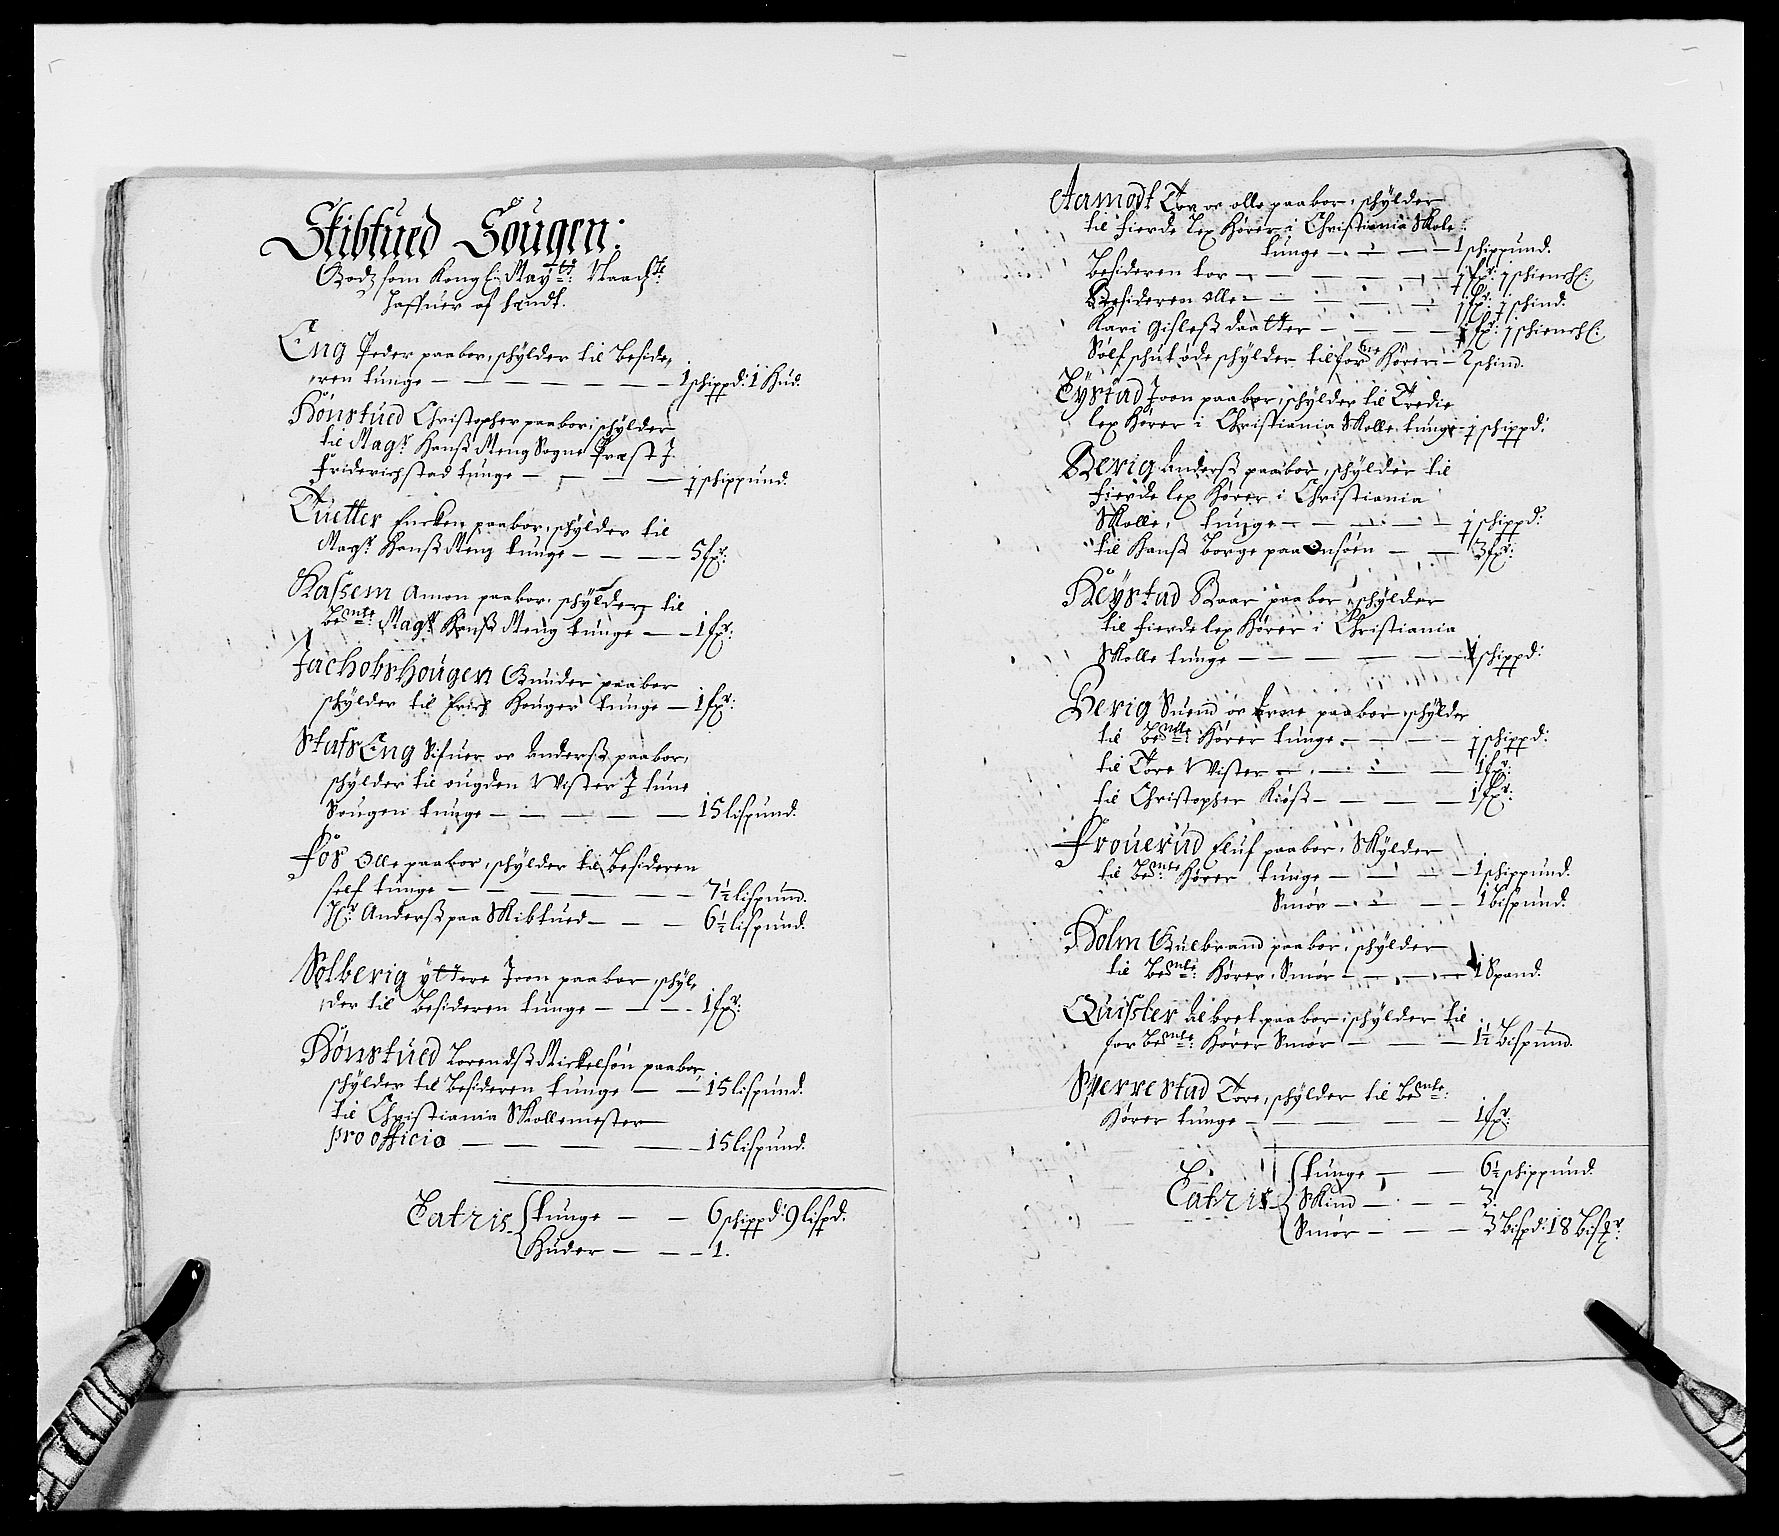 Skibtued Sougen:
Godtz som Kong: May:tt: Naad:st
haffuer af hendt.
Eng Peder paaboer, schÿlder til Beside,
eren tunge — 1 schippd: 1 Hud.
Hönstúed Christopher paaboer, schÿlder
til Mag:r Hanß Meng Sogne Præst J
Friderichstad tunge — 1 schippund.
Tuetter paaboer, schÿlder til
Mag:r Hanß Meng tunge — 5 fr:
Kassem Amon paaboer, schÿlder til
Be:mte: Mag:r Hanß Meng tunge — 1 fr:
Jachobshougen Gunder paaboer
schÿlder til Erich Houger tunge — 1 fr:
Stafs Eng Sifuer oc Anderß paaboer,
schÿlder til ougden Wister J tune
Sougen tunge — 15 lispund.
Fos Olle paaboer, schÿlder til Besideren
self tunge — 7½ lispund.
Hr: Anderß paa Skibtued — 6½ lispund.
Solberig ÿttere Joen paaboer schÿl,
der til Besideren tunge — 1 fr:
Hönstúed Lorendß Mickelsøn paaboer,
schÿlder til Besideren tunge — 15 lispund.
til Christiania Skollemester
pro officio — 15 lispund.
Latris tunge — 6 schippd: 9 lispd.
Huder — 1.
Aamodt Tor oc olle paaboer, schÿlder
til fierde lex Hører i Christiania Skole:
tunge — 1 schippund.
Besideren tor — 1 fr: 1 schiensh:
Besideren olle — 1 fr: 1 schind.
Kari Gisleß daatter — 1 fr: 1 schiensh:
Sølfschut öde schÿlder til for:ne Hører — 2 schind.
Eÿstad Joen paaboer, schÿlder til Tredie
lex Hører i Christiania Skolle tunge — 1 schippd:
Berig Anderß paaboer, schÿlder til
fierde lex Hører i Christiania
Skolle, tunge — 1 schippd:
til Hanß Borge paa Onsøen — 3 fr:
Røÿstad Roar paaboer, schÿlder
til fierde lex Hører i Christiania
Skolle tunge — 1 schippd:
Berig Suend oc paaboer, schÿlder
til Be:mte: Hører tunge — 1 schippd:
til Tore Wister — 1 fr:
til Christopher Kiöß — 1 fr:
Frouerud Eluf paaboer, Skÿlder
til Be:mte: Hører tunge — 1 schippund.
Smör — 1 bispund.
Holm Gulbrand paaboer, schÿlder
til Be:mte: Hører, Smör — 1 Spand.
Quister Albret paaboer, schÿlder til
for Be:mte: Hører Smör — 1½ Bispund.
Sperrestad Tore, schÿlder til Be:mte:
Hører tunge — 1 fr:
Latris tunge — 6½ schippund.
Skind — 3.
Smör — 3 bispd: 18 bisfr: